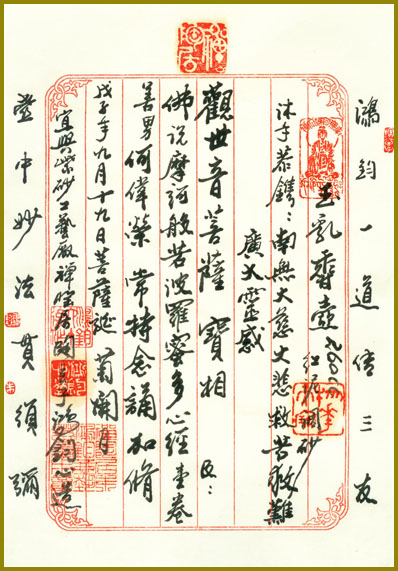 禪陶居
鴻鈞一道傳三友
玉乳壺 紅泥調砂
沐手恭鐫：南無大慈大悲救苦救難
廣大靈感
觀世音菩薩 寶相 及：
佛说摩訶般若波羅蜜多心經壹卷
善男何偉榮 常持念誦加脩
戊子年九月十九日菩薩誕 菊開月
宜興紫砂工藝廠禪陶居陶子鴻鈞心造
壺中妙法貫須彌